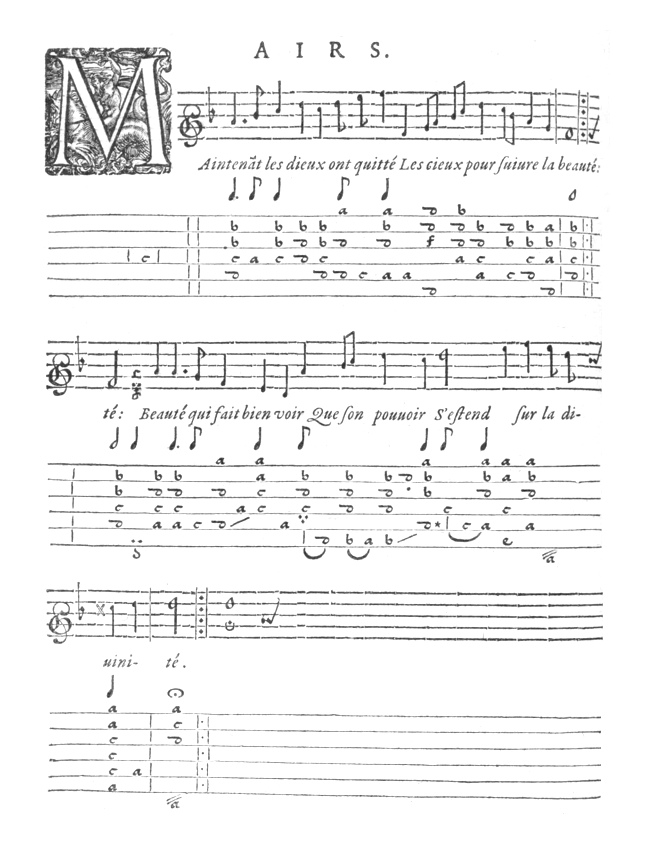 AIRS.
MAintenāt les dieux ont quitté Les cieux pour ſuiure la beauté:
té: Beauté qui fait bien voir Que ſon pouuoir S'eſtend ſur la di-
uini- té.